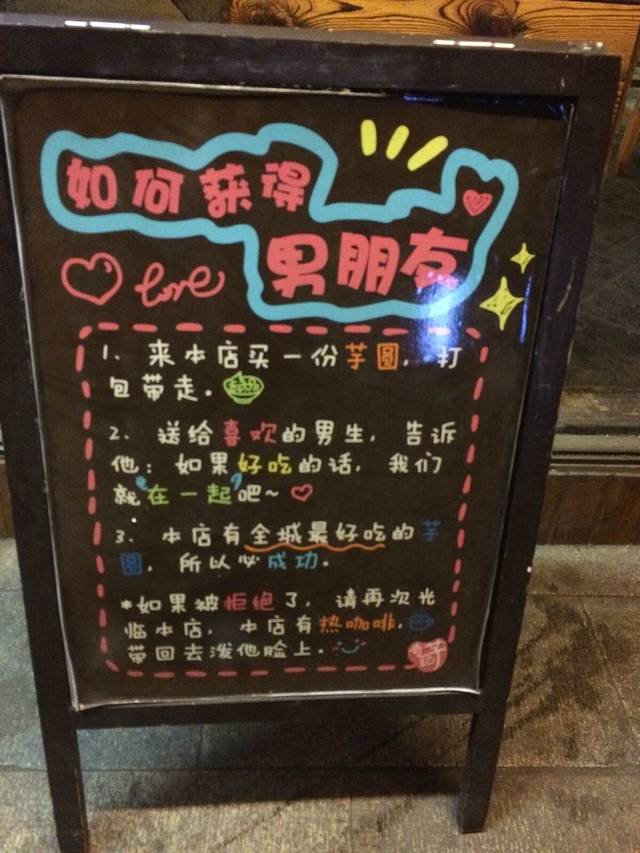 如何获得
男朋友
love
1. 来本店买一份芋圆, 打
包带走.
2. 送给喜欢的男生, 告诉
他: 如果好吃的话, 我们
就在一起吧~
3. 本店有全城最好吃的芋
圆, 所以必成功.
*如果被拒绝了, 请再次光
临本店, 本店有热咖啡,
带回去泼他脸上.